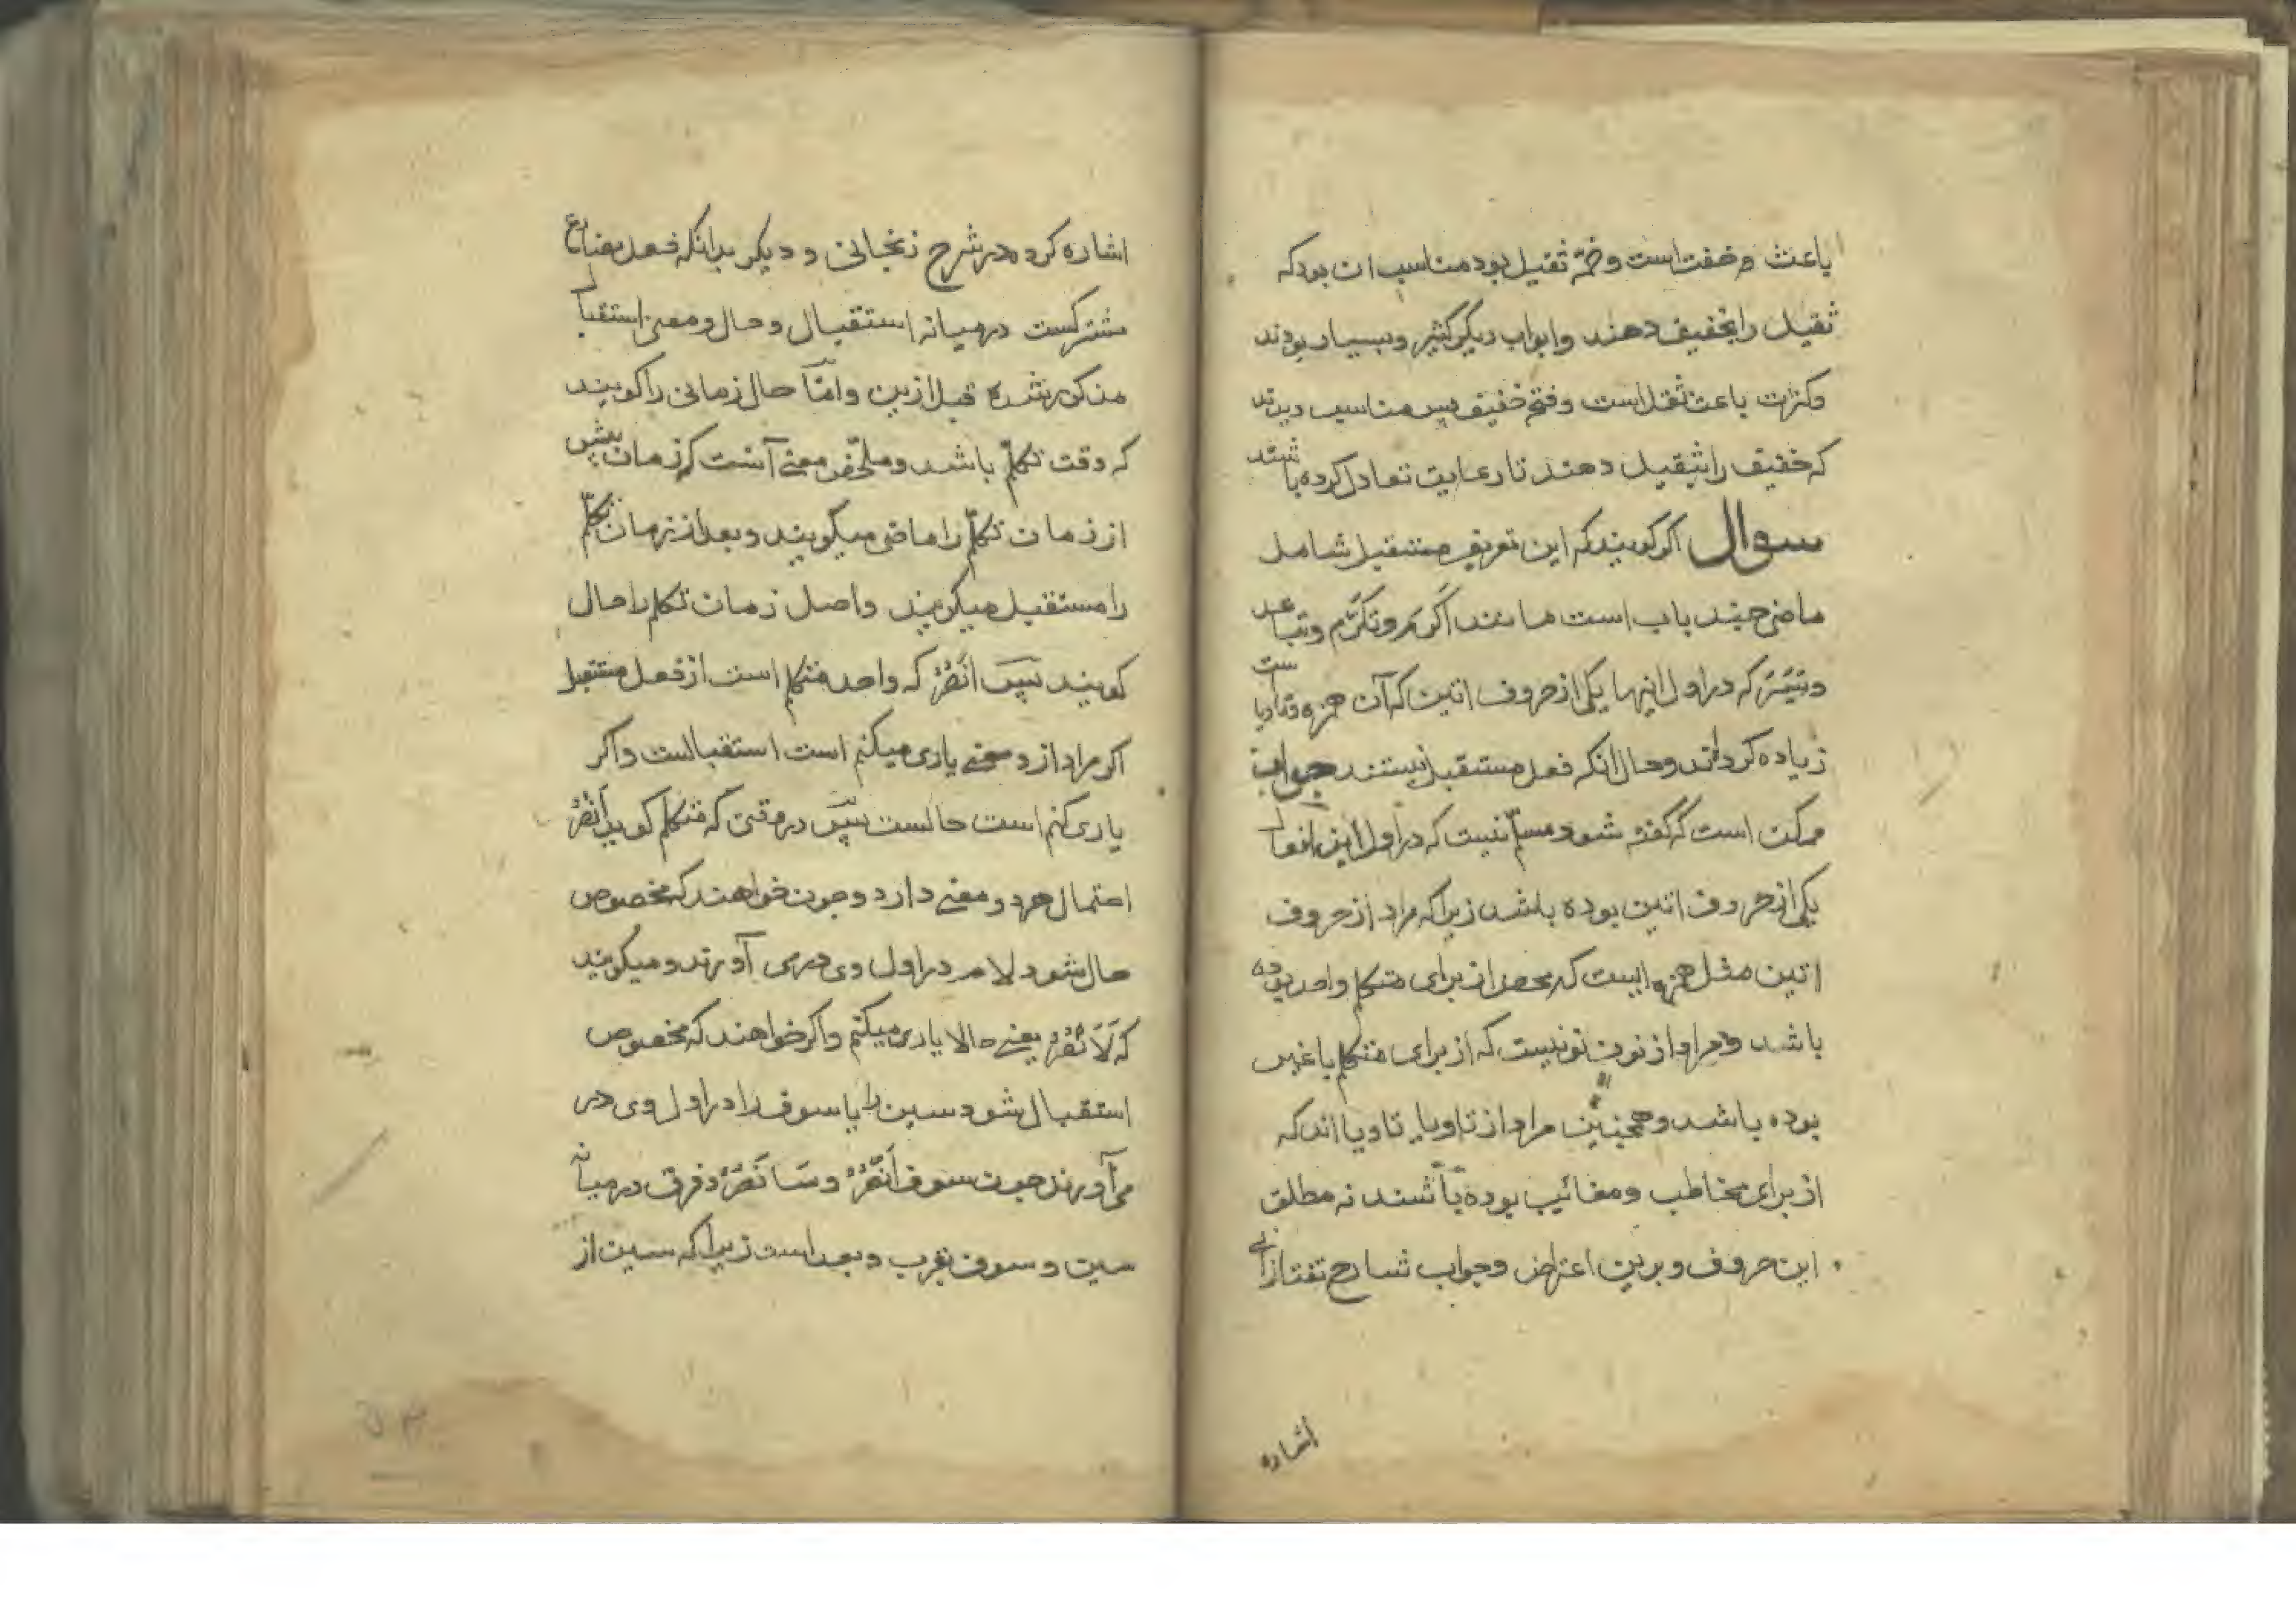 باعث و خفت است و ضمّ ثقیل بود مناسب ان بود که
ثقیل را بخفیف دهند و ابواب دیکر کثیر و بسیار بودند
و کثرت باعث ثقل است و فتح خفیف پس مناسب دیدند
که خفیف را بثقیل دهند تا رعایت تعادل کرده باشند
سوال اکر کویند که این تعریف مستقبل شامل
ماضی چند باب است مانند اَکْرَمَ و تَکَرَّمَ و تباعد
و تَیَسَّرَ که در اول اینها یکی از حروف اتین که آن همزه و تا و یا ست
زیاده کرده اند و حال انکه فعل مستقبل نیستند جواب
ممکن است که کفته شود مسلّم نیست که در اول این افعال
یکی از حروف اتین بوده باشد زیرا که مراد از حروف
اتین مثل همزه ایست که محض از برای متکلم واحد بوده
باشد و مراد از نون نونیست که از برای متکلم با غیر
بوده باشد و همچنین مراد از تا و یا تا و یا اند که
از برای مخاطب و مغائب بوده باشند نه مطلق
این حروف و برین اعتراض و جواب شارح تفتازانی
اشاره
اشاره کرده در شرح زنجانی و دیکر بدانکه فعل مضارع
مشترکست در میانه استقبال و حال و معنی استقبال
مذکور شده قبل ازین و امّا حال زمانی را کویند
که وقت تکلّم باشد و ملخّص معنی آنست که زمان پیش
از زمان تکلّم را ماضی میکویند و بعد از زمان تکلّم
را مستقبل میکویند و اصل زمان تکلم را حال
کویند پس اَنْصُرُ که واحد متکلم است از فعل مستقبل
اکر مراد از و معنی یاری میکنم است استقبالست و اکر
یاری کنم است حالست پس در وقتی که متکلم کوید اَنْصُرُ
احتمال هر دو معنی دارد و چون خواهند که مخصوص
حال شود لام در اول وی در می آورند و میکویند
که لَاَنْصُرُ یعنی حالا یاری میکنم و اکر خواهند که مخصوص
استقبال شود سین را یا سوف را در اول وی در
می آورند چون سوف اَنْصُرُ و سَاَنْصُرُ و فرق در میانه
سین و سوف بقرب و بعد است زیرا که سین از